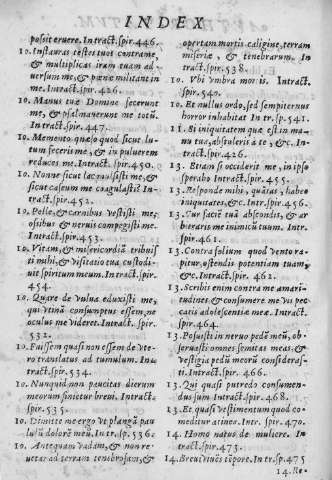 INDEX
possit eruere. Intract. spir. 446.
10. Instauras testes tuos contra me,
& multiplicas iram tuam ad-
uersum me, & pœnæ militant in
me. Intract. spir. 426.
10. Manus tuæ Domine fecerunt
me, & plasmauerunt me totũ.
Intract. spir. 447.
10. Memento quæso quod sicut lu-
tum feceris me, & in puluerem
reduces me. Intract. spir. 450.
10. Nonne sicut lac mulsisti me, &
sicut caseum me coagulasti? In-
tract. spir. 452.
10. Pelle, & carnibus vestisti me;
ossibus & neruis compegisti me.
Intract. spir. 453.
10. Vitam, & misericordiã tribuis
ti mihi, & visitatio tua custodi-
uit spiritum meum. Intract. spir.
454.
10. Quare de vulua eduxisti me,
qui vtinã consumptus essem, ne
oculus me videret. Intract. spir.
532.
10. Fuissem quasi non essem de vte-
ro translatus ad tumulum. In-
tract. spir. 534.
10. Nunquid non paucitas dierum
meorum finietur breui. Intract.
spir. 535.
10. Dimitte me ergo vt plangã pau
lulũ dolorẽ meũ. In tr. sp. 536.
10. Antequam vadam, & non re-
uertar ad terram tenebrosam, &
opertam mortis caligine, terram
miseriæ, & tenebrarum. In
tract. spir. 538.
10. Vbi vmbra mortis. Intract.
spir. 540.
10. Et nullus ordo, sed sempiternus
horror inhabitat In tr. sp. 541.
11. Si iniquitatem quæ est in ma-
nu tua, abstuleris a te, &c. In-
tract. spir. 426.
13. Etiam si occiderit me, in ipso
sperabo Intract. spir. 455.
13. Responde mihi, quãtas, habeo
iniquitates, &c. Intr. spir. 456.
13. Cur faciẽ tuã abscondis, & ar
bitraris me inimicũ tuum. Intr.
spir. 461.
13. Contra folium quod vento ra-
pitur, ostendis potentiam tuam,
&c. Intract. spir. 462.
13. Scribis enim contra me amari-
tudines & consumere me vis pec
catis adolescentiæ meæ. Intract.
spir. 464.
13. Posuisti in neruo pedẽ meũ, ob
seruasti omnes semitas meas: &
vestigia pedũ meorũ considerasti.
Intract. spir. 466.
13. Qui quasi putredo consumen-
dus sum Intract. spir. 468.
13. Et quasi vestimentum quod co-
meditur a tinea. Intr. spir. 470.
14. Homo natus de muliere. In
tract. spir. 473.
14. Breui viuẽs tẽpore. In tr. sp. 475
14. Re-